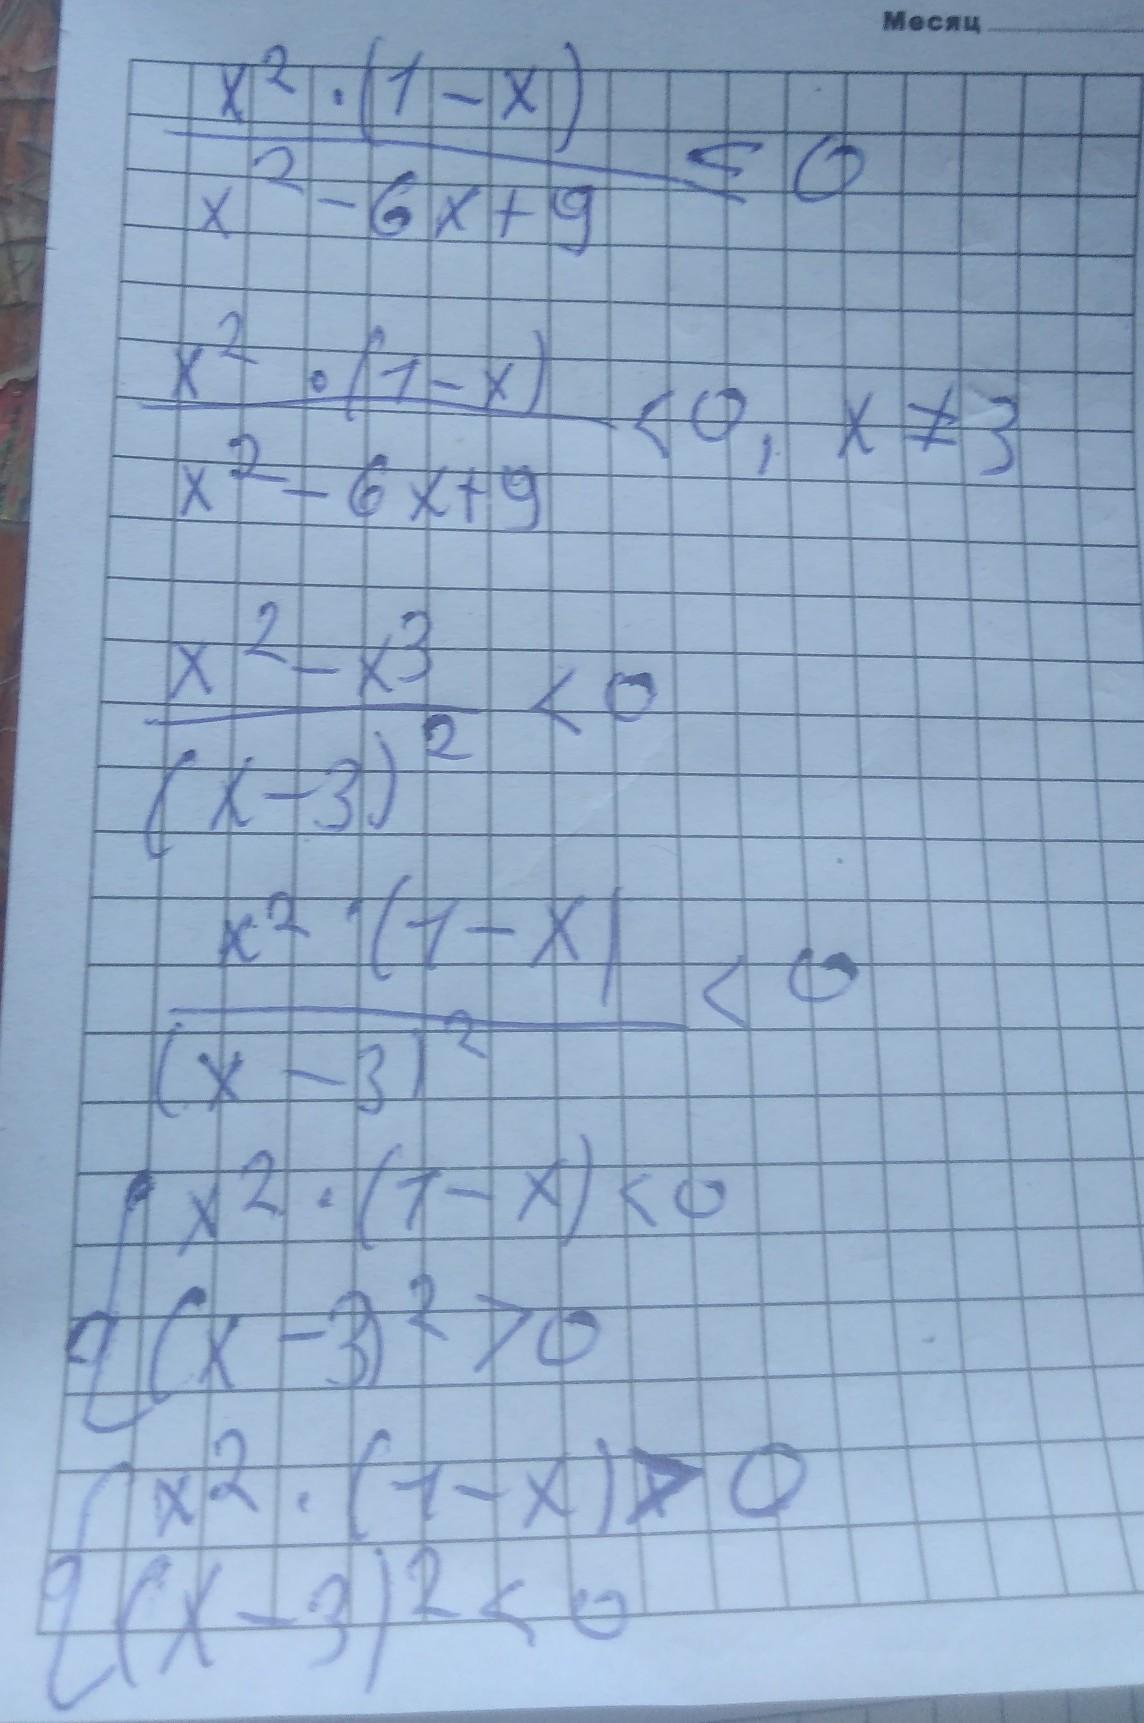 Месяц
x² · (1 - x)
x² - 6x + 9
≤ 0
x² · (1 - x)
x² - 6x + 9
< 0, x ≠ 3
x² - x³
(x - 3)²
< 0
x² · (1 - x)
(x - 3)²
< 0
{ x² · (1 - x) < 0
(x - 3)² > 0
{ x² · (1 - x) > 0
(x - 3)² < 0